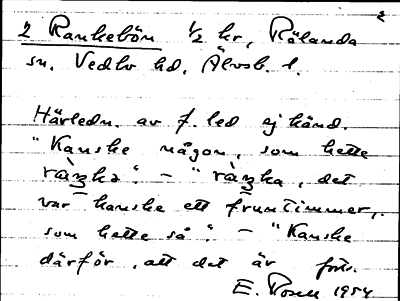 2
2 Rankebön ½ kr, Rölanda
sn. Vedbo hd. Älvsb. l.
Härledn. av f. led ej känd.
"Kanske någon, som hette
ràŋka". – "ràŋka, det
var kanske ett fruntimmer,
som hette så". – "Kanske
därför, att det är forts.
E. Rosell 1954